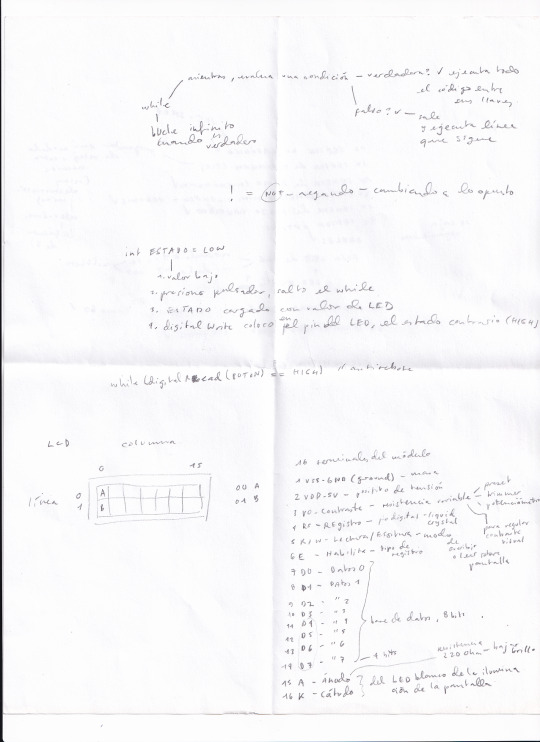 mientras, evalua una condición - verdadera? ✓ ejecuta todo
el código entre
sus llaves
while
falso? ✓ - sale
y ejecuta línea
que sigue
bucle infinito
cuando es verdadero
! = NOT - negando - cambiando a lo opuesto
int ESTADO = LOW
1. valor bajo
2. presione pulsador, salto el while
3. ESTADO cargada con valor de LED
4. digital Write coloco en el pin del LED, el estado contrario (HIGH)
while (digital Read (BOTON) == HIGH) // antirebote
LCD columna
0 15
línea 0 A 00 A
1 B 01 B
16 terminales del módulo
1 VSS-GND (ground) - masa
2 VDD-5V - positivo de tensión
3 VO-Contraste - resistencia variable - preset
trimmer
potenciómetro
para regular
contraste
visual
4 RS - REgistro - liquid
crystal
5 R/W - Lectura/Escritura - modo
de escribir
o leer sobre
pantalla
6 E - Habilita - tipo de
registro
7 D0 - Datos 0
8 D1 - Datos 1
9 D2 - " 2
10 D3 - " 3
11 D4 - " 4
12 D5 - " 5
13 D6 - " 6
14 D7 - " 7 - 4 bits
de datos, 8 bits.
resistencia
220 Ohm - bajo
brillo
15 A - ánodo
16 K - cátodo
del LED blanco de la ilumina
ción de la pantalla